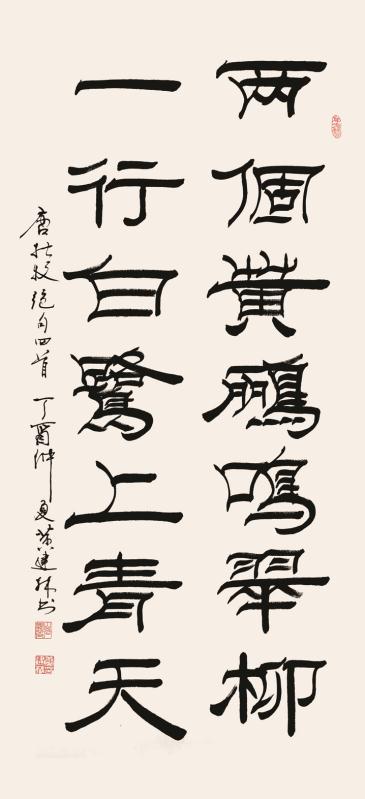 两個黄鸝鳴翠柳
一行白鷺上青天
唐杜牧絕句四首 丁酉仲夏黄建林书